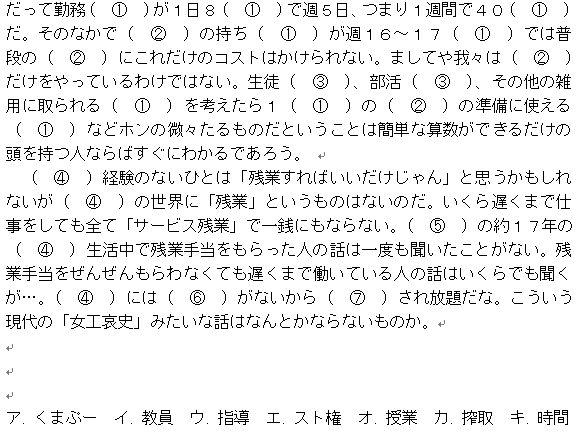 だって勤務（　①　）が１日８（　①　）で週５日、つまり１週間で４０（　①　）
だ。そのなかで（　②　）の持ち（　①　）が週１６～１７（　①　）では普
段の（　②　）にこれだけのコストはかけられない。ましてや我々は（　②　）
だけをやっているわけではない。生徒（　③　）、部活（　③　）、その他の雑
用に取られる（　①　）を考えたら１（　①　）の（　②　）の準備に使える
（　①　）などホンの微々たるものだということは簡単な算数ができるだけの
頭を持つ人ならばすぐにわかるであろう。
（　④　）経験のないひとは「残業すればいいだけじゃん」と思うかもしれ
ないが（　④　）の世界に「残業」というものはないのだ。いくら遅くまで仕
事をしても全て「サービス残業」で一銭にもならない。（　⑤　）の約１７年の
（　④　）生活中で残業手当をもらった人の話は一度も聞いたことがない。残
業手当をぜんぜんもらわなくても遅くまで働いている人の話はいくらでも聞く
が…。（　④　）には（　⑥　）がないから（　⑦　）され放題だな。こういう
現代の「女工哀史」みたいな話はなんとかならないものか。
ア．くまぶー　イ．教員　ウ．指導　エ．スト権　オ．授業　カ．搾取　キ．時間